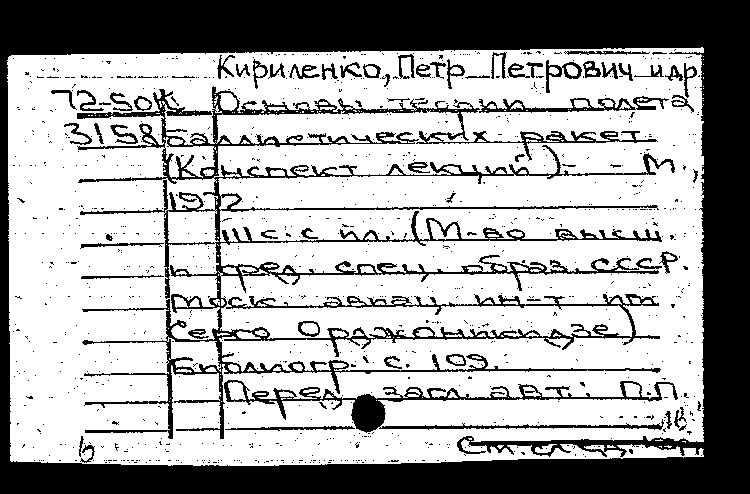 Кириленко, Петр Петрович и др
72-50к Основы теории полета
3158 баллистических ракет.
(Конспект лекций). - М.,
1972.
111 с. с ил. (М-во высш.
и сред. спец. образ. СССР.
Моск. авиац. ин-т им.
Серго Орджоникидзе)
Библиогр.: с. 109.
Перед загл. авт.: П.П.
См. след.